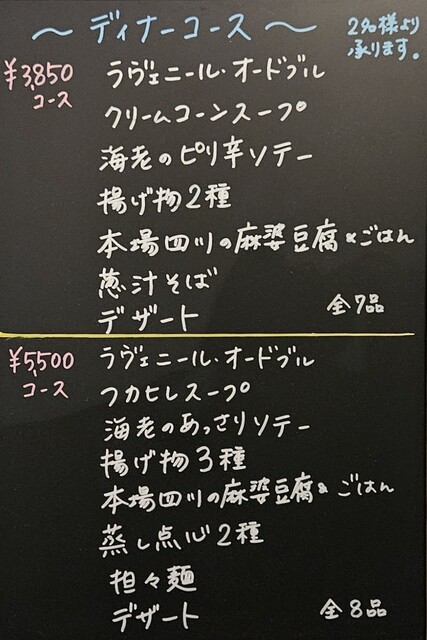 ～ ディナーコース ～
2名様より
承ります。
¥3,850
コース
ラヴェニール・オードブル
クリームコーンスープ
海老のピリ辛ソテー
揚げ物2種
本場四川の麻婆豆腐&ごはん
葱汁そば
デザート
全7品
¥5,500
コース
ラヴェニール・オードブル
フカヒレスープ
海老のあっさりソテー
揚げ物3種
本場四川の麻婆豆腐&ごはん
蒸し点心2種
担々麺
デザート
全8品